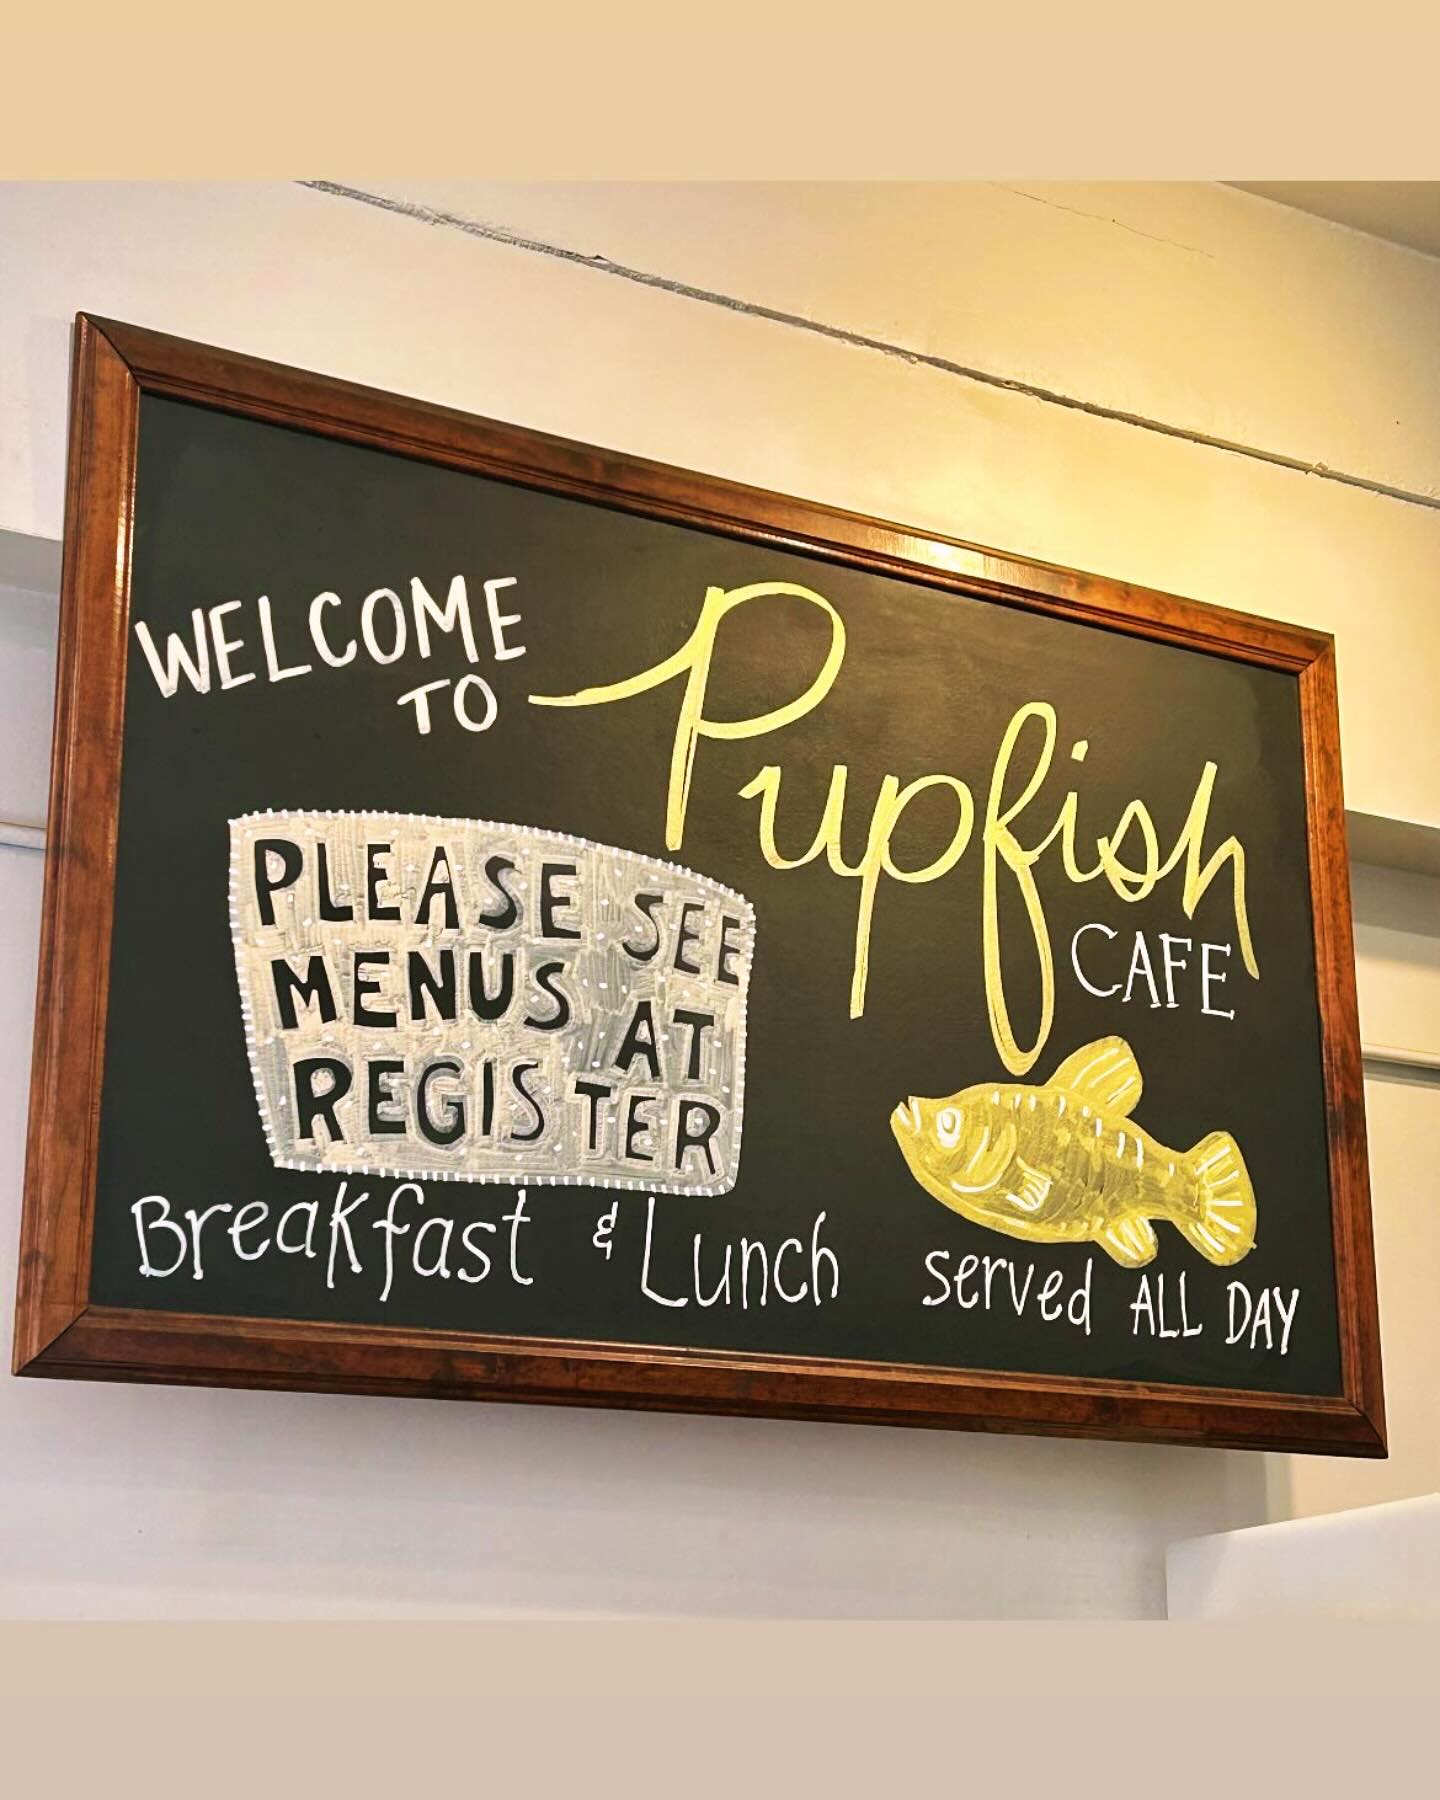 WELCOME
TO
Pupfish
CAFE
PLEASE SEE
MENUS AT
REGISTER
Breakfast & Lunch served ALL DAY